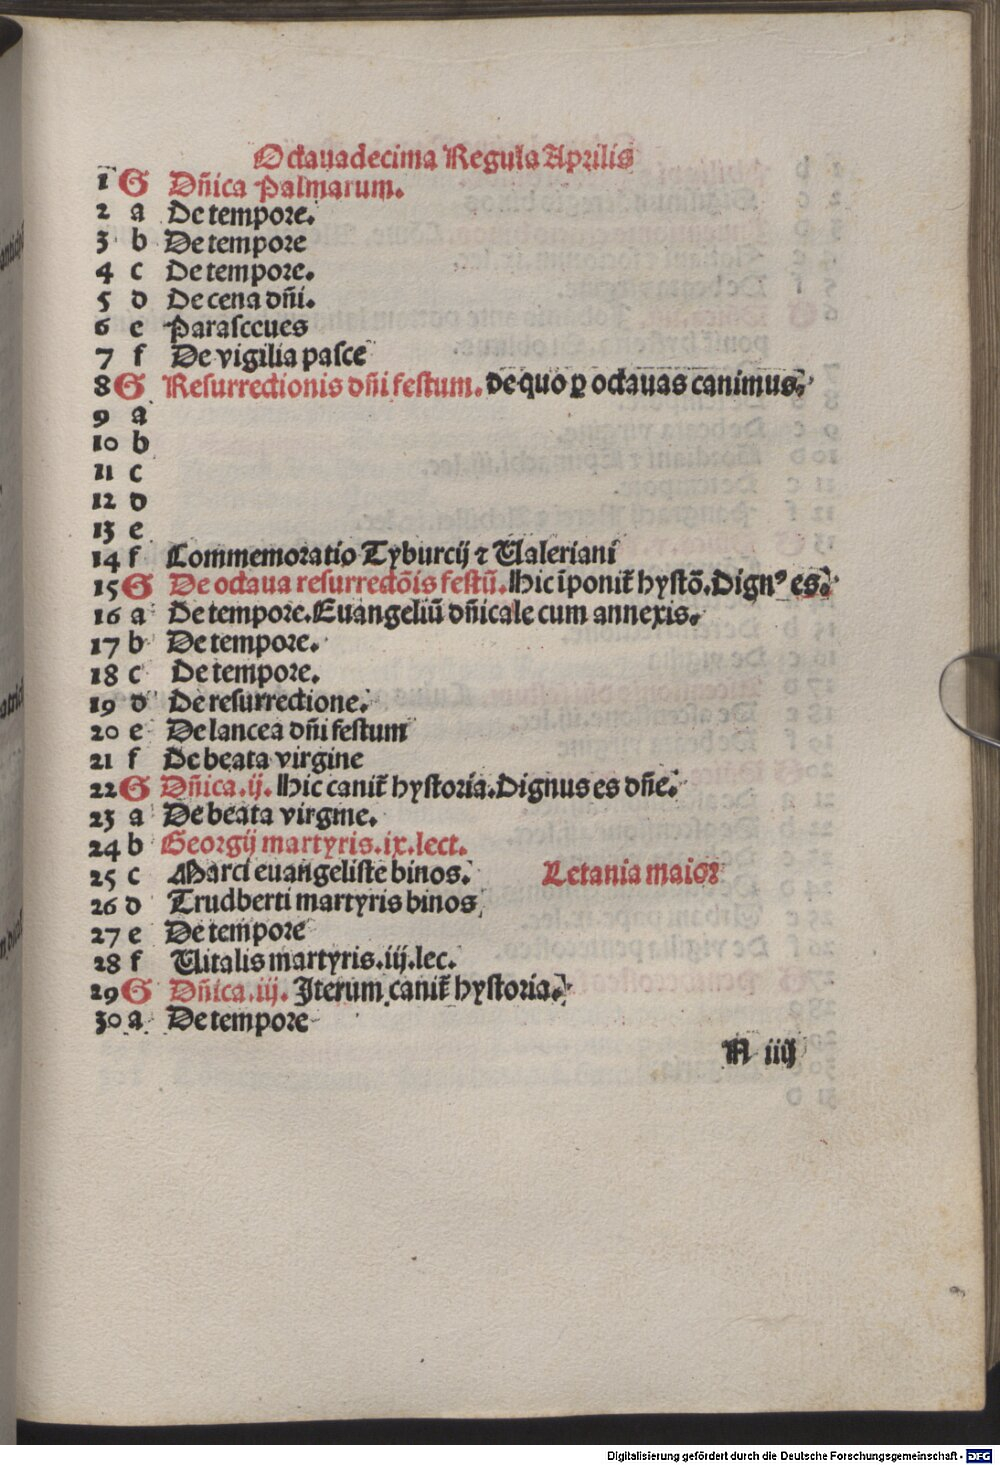 Octauadecima Regula Aprilis
1 G Dñica Palmarum.
2 a De tempore.
3 b De tempore
4 c De tempore.
5 d De cena dñi.
6 e Parasceues
7 f De vigilia pasce
8 G Resurrectionis dñi festum. de quo ꝑ octauas canimus.
9 a
10 b
11 c
12 d
13 e
14 f Commemoratio Tyburcij ⁊ Ualeriani
15 G De octaua resurrectōis festū. Hic īponit̃ hystō. Dignꝰ es.
16 a De tempore. Euangeliū dñicale cum annexis.
17 b De tempore.
18 c De tempore.
19 d De resurrectione.
20 e De lancea dñi festum
21 f De beata virgine
22 G Dñica .ij. Hic canit̃ hystoria. Dignus es dñe.
23 a De beata virgine.
24 b Georgij martyris .ix. lect.
25 c Marci euangeliste binos. Letania maior
26 d Trudberti martyris binos
27 e De tempore
28 f Uitalis martyris .iij. lec.
29 G Dñica .iij. Iterum canit̃ hystoria.
30 a De tempore
N iiij
Digitalisierung gefördert durch die Deutsche Forschungsgemeinschaft - DFG